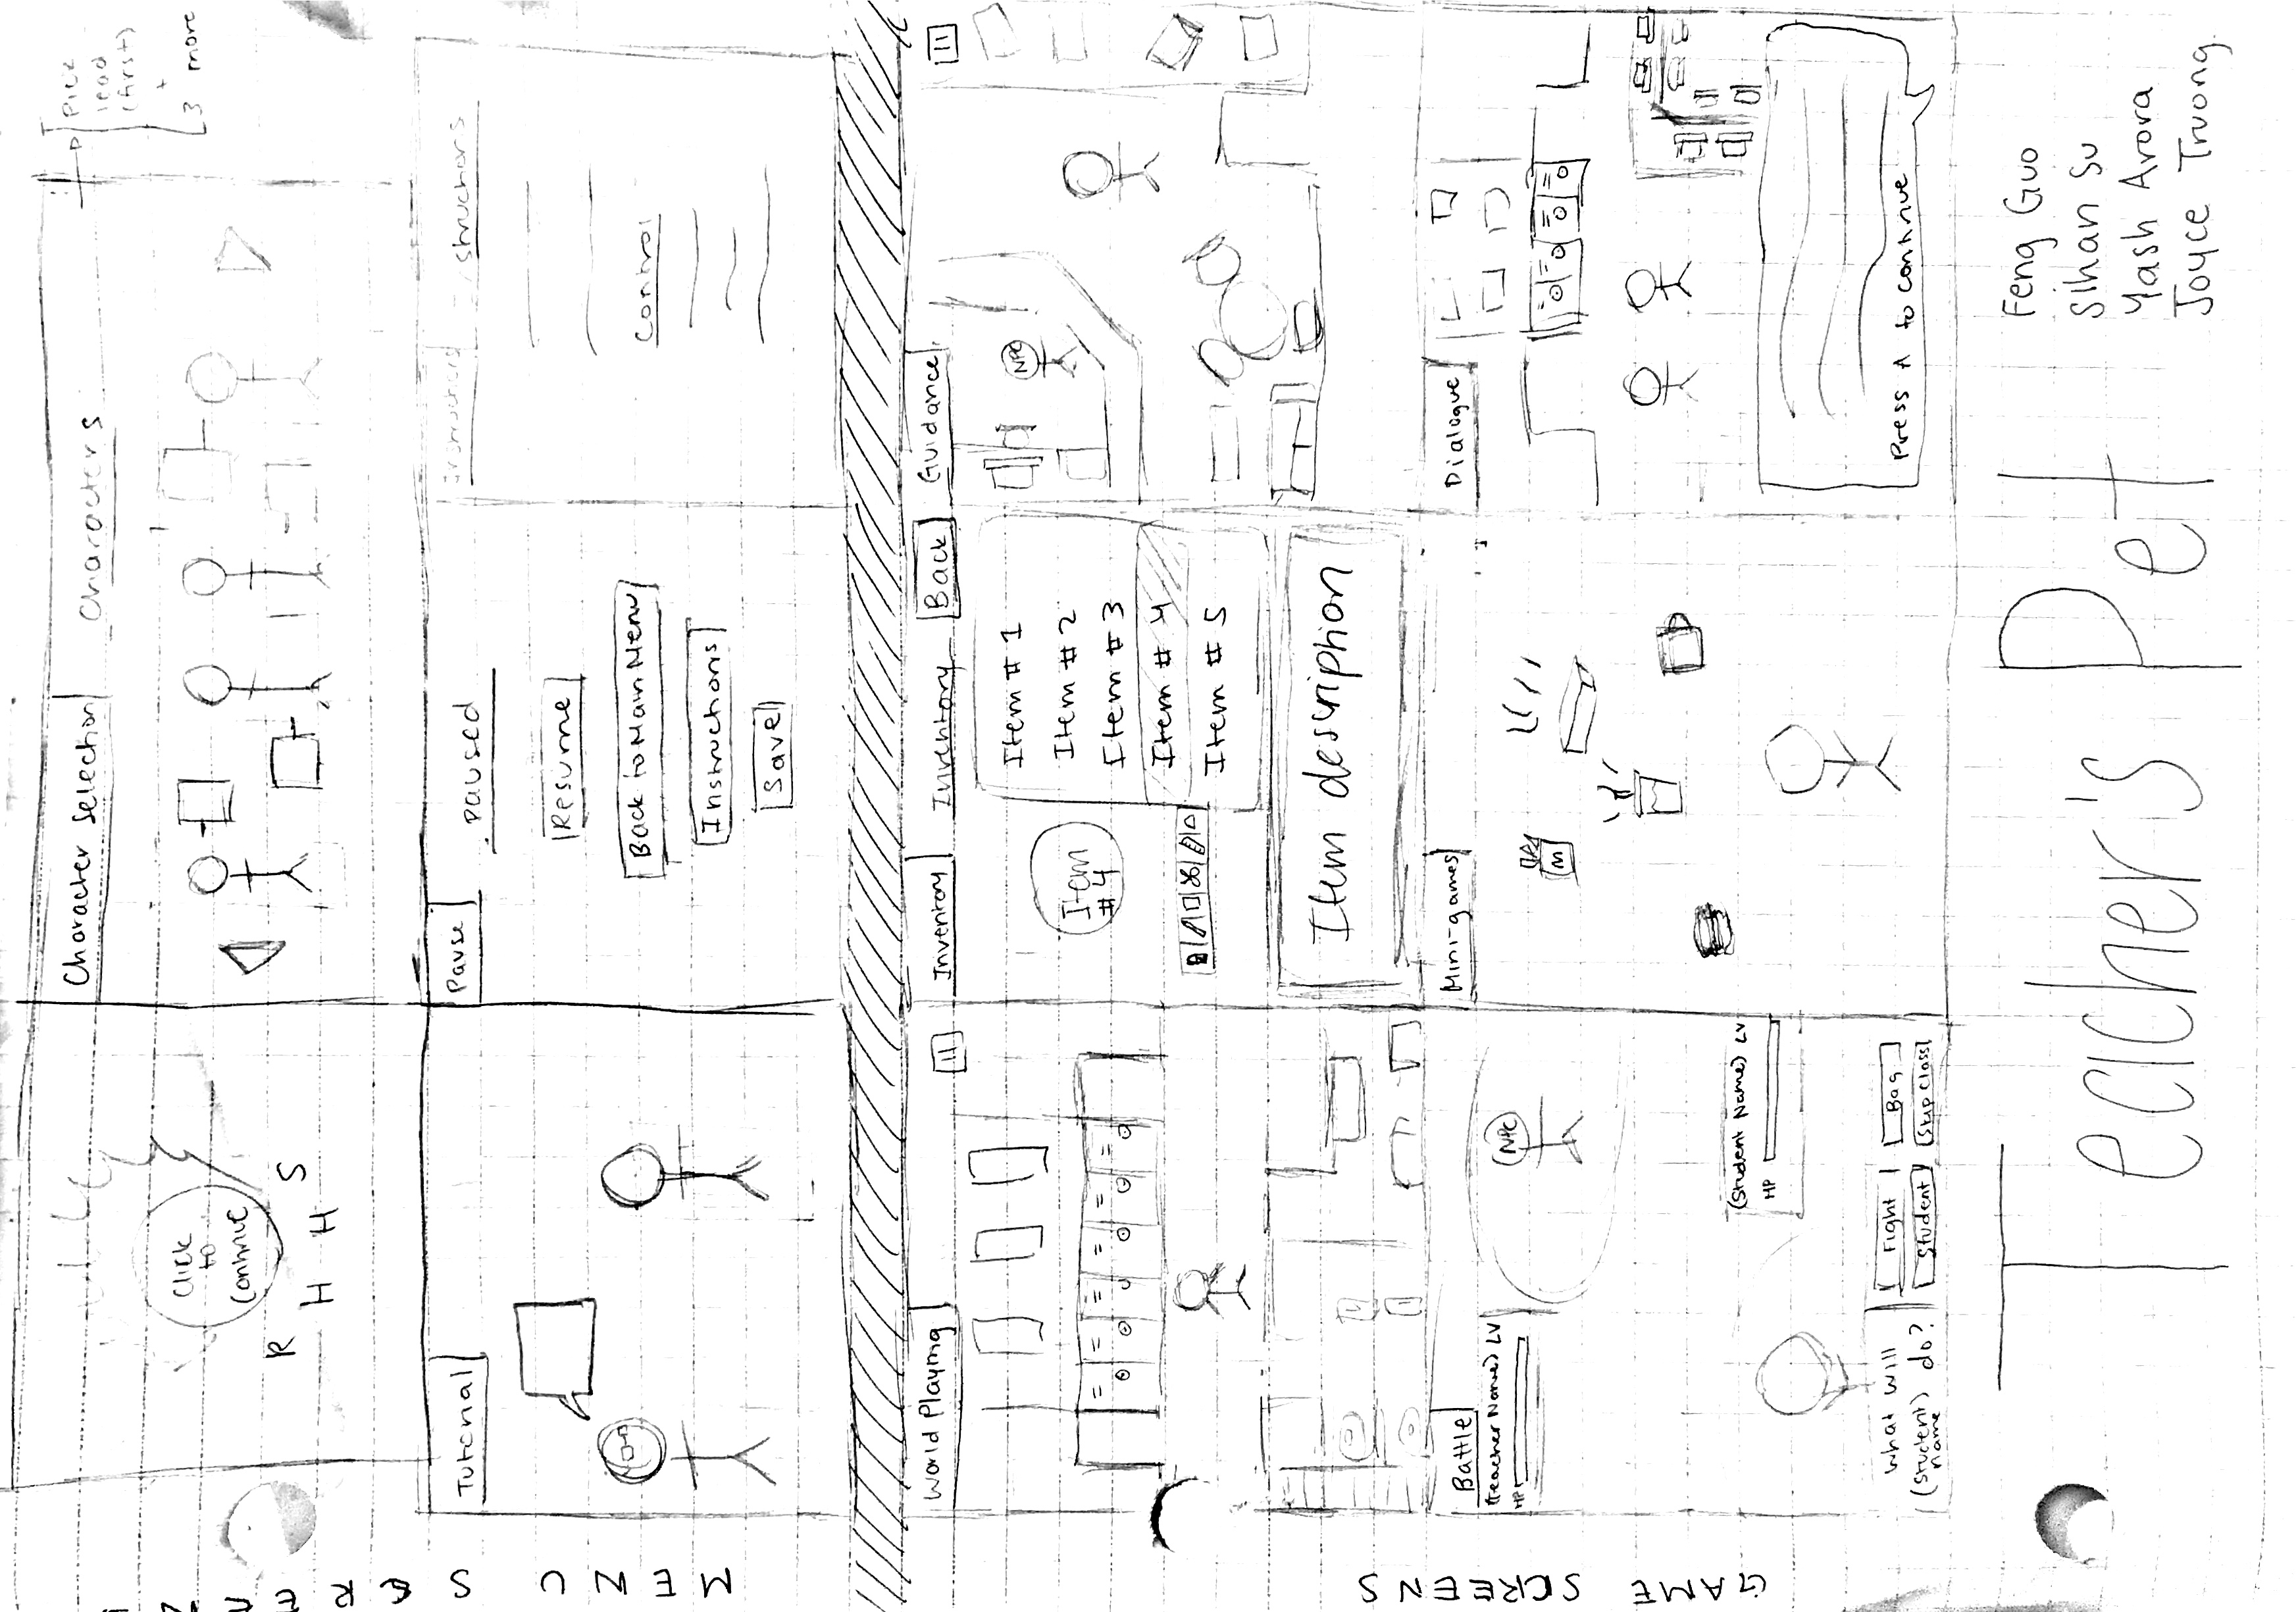 MENU SCREEN
Click
to
Continue
R H H S
Character Selection
Characters
Pick
lead
(first)
+
3 more
Tutorial
Pause
Paused
Resume
Back to Main Menu
Instructions
Save
structions
Control
GAME SCREENS
World Playing
Inventory
Inventory
Back
Item # 1
Item # 2
Item # 3
Item # 4
Item # 5
Item
# 4
Item description
Guidance
NPC
Battle
(Teacher Name) LV
HP
NPC
(Student Name) LV
HP
What will
(Student
name) do?
Fight
Bag
Student
Skip Class
Mini-games
M
Dialogue
Press A to continue
Teacher's Pet
Feng Guo
Sihan Su
Yash Arora
Joyce Truong